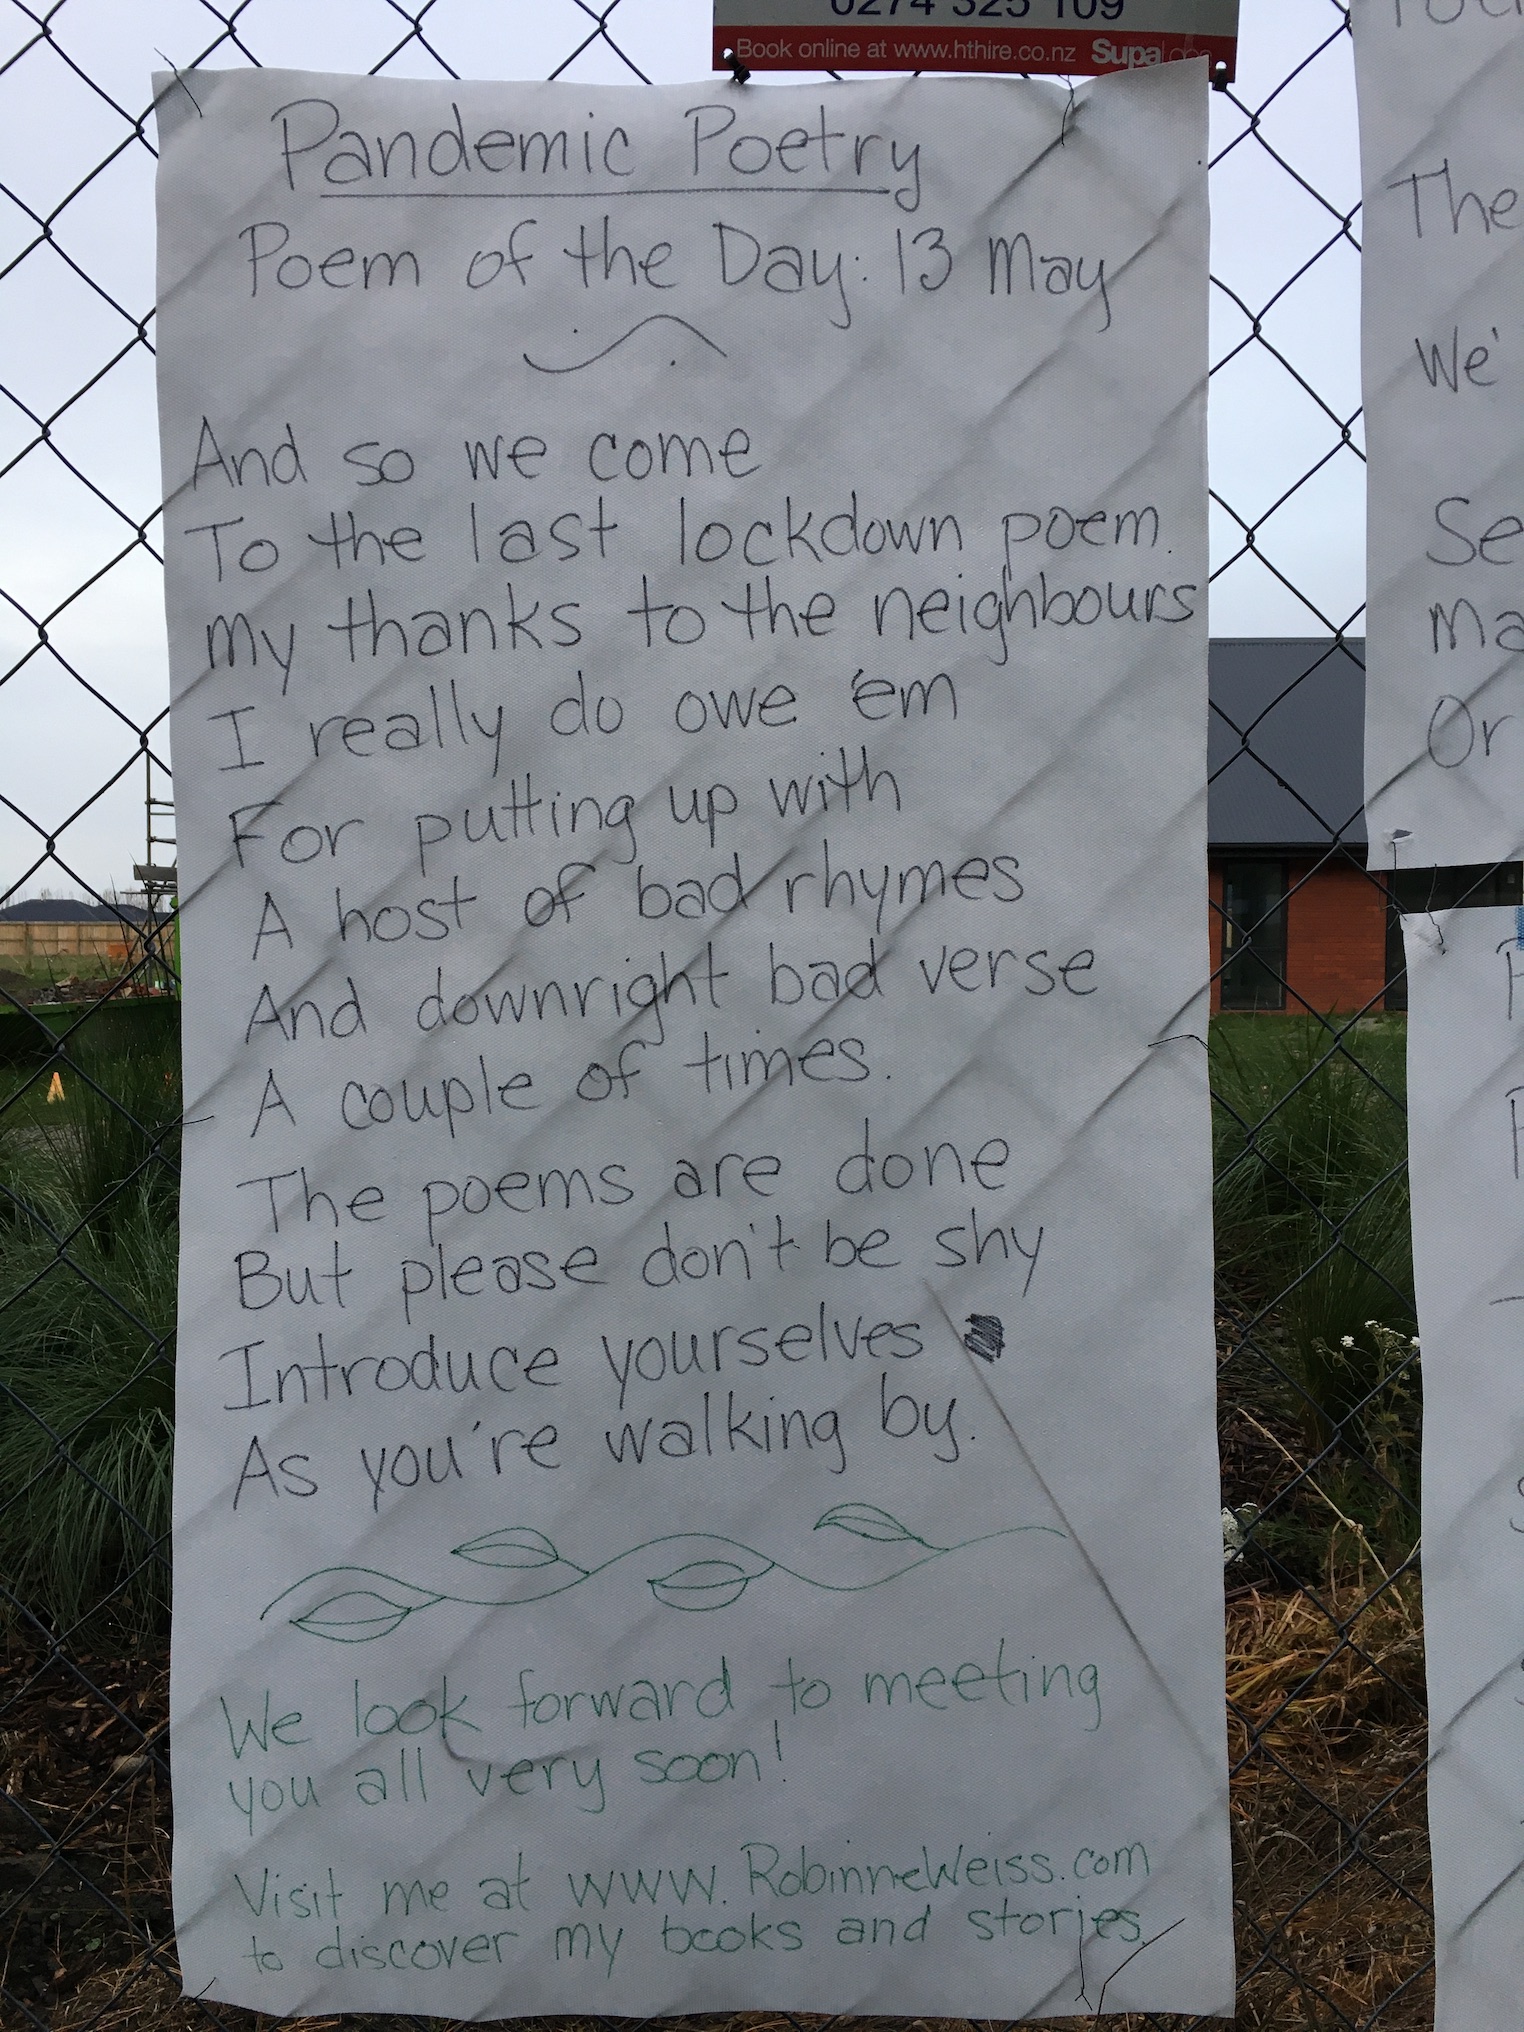 0274 325 109
Book online at www.hthire.co.nz Supa
Pandemic Poetry
Poem of the Day: 13 May
And so we come
To the last lockdown poem.
My thanks to the neighbours
I really do owe 'em
For putting up with
A host of bad rhymes
And downright bad verse
A couple of times.
The poems are done
But please don't be shy
Introduce yourselves
As you're walking by.
We look forward to meeting
you all very soon!
Visit me at www.RobinneWeiss.com
to discover my books and stories.
The
We'
Se
Ma
Or